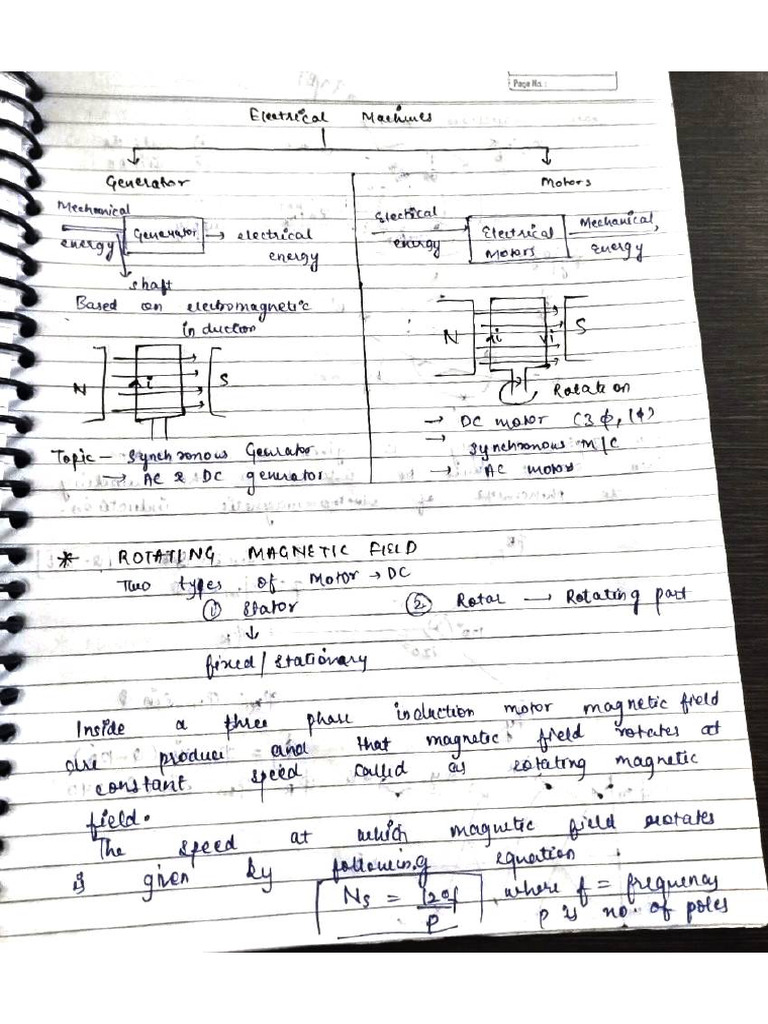 Page No.:
Electrical Machines
Generator
Motors
Mechanical
energy
Generator
electrical
energy
shaft
Electical
energy
Electrical
Motors
Mechanical
Energy
Based on electromagnetic
induction
N i S
N i i S
Rotation
→ DC motor (3ϕ, 1ϕ)
→ Synchronous m/c
→ AC motor
Topic - Synchronous Generator
→ AC & DC generator
* ROTATING MAGNETIC FIELD
Two types of Motor → DC
① Stator ② Rotar → Rotating part
↓
fixed / stationary
Inside a three phase induction motor magnetic field
are produce and that magnetic field rotates at
constant speed called as rotating magnetic
field.
The speed at which magnetic field rotates
is given by following equation
Ns = 120f/P where f = frequency
P is no. of poles